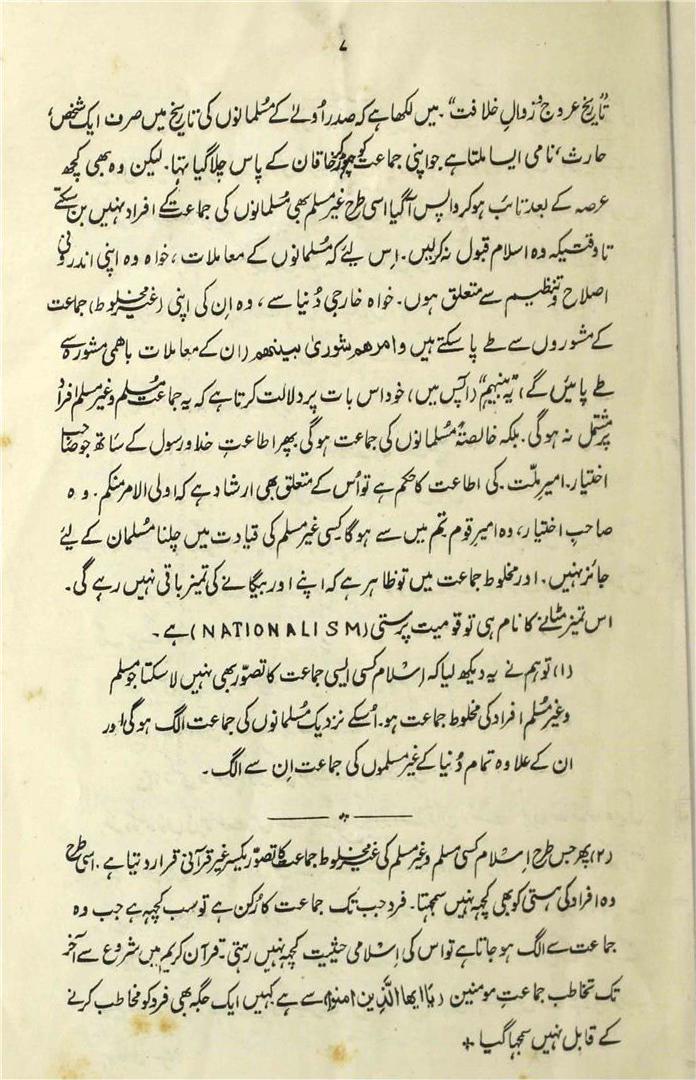 ۷
تاریخ عروج و زوالِ خلافت“۔ میں لکھا ہے کہ صدرِ اُولےٰ کے مُسلمانوں کی تاریخ میں صرف ایک شخص،
حارث، نامی ایسا ملتا ہے جو اپنی جماعت کو چھوڑکر خاقان کے پاس چلا گیا تہا۔ لیکن وہ بھی کچھ
عرصہ کے بعد تائب ہو کر واپس آ گیا اسی طرح غیر مسلم بھی مُسلمانوں کی جماعت کے افراد نہیں بن سکتے
تا وقتیکہ وہ اسلام قبول نہ کر لیں۔ اِس لئے کہ مُسلمانوں کے معاملات، خواہ وہ اپنی اندرونی
اصلاح و تنظیم سے متعلق ہوں۔ خواہ خارجی دُنیا سے، وہ اِن کی اپنی (غیر مخلوط) جماعت
کے مشوروں سے طے پا سکتے ہیں وامرھم شوریٰ بینھم (ان کے معاملات باھمی مشورہ سے
طے پائیں گے) ”یہ بینہم“ (آپس میں)، خود اس بات پر دلالت کرتا ہے کہ یہ جماعت مُسلم و غیر مسلم افراد
پر مشتمل نہ ہو گی۔ بلکہ خالصتہً مُسلمانوں کی جماعت ہو گی پھر اطاعتِ خدا و رسول کے ساتھ جو صاحب
اختیار۔ امیرِ ملّت۔ کی اطاعت کا حکم ہے تو اُس کے متعلق بھی ارشاد ہے کہ اولی الامر منکم۔ وہ
صاحبِ اختیار، وہ امیرِ قوم تم میں سے ہو گا کِسی غیر مسلم کی قیادت میں چلنا مُسلمان کے لیے
جائز نہیں۔ اور مخلوط جماعت میں تو ظاہر ہے کہ اپنے اور بیگانے کی تمیز باقی نہیں رہے گی۔
اس تمیز مٹانے کا نام ہی تو قومیت پرستی (NATIONALISM) ہے۔
(۱) تو ہم نے یہ دیکھ لیا کہ اِسلام کسی ایسی جماعت کا تصوّر بھی نہیں لا سکتا جو مسلم
و غیر مُسلم افراد کی مخلوط جماعت ہو۔ اُسکے نزدیک مُسلمانوں کی جماعت الگ ہو گی اور
ان کے علاوہ تمام دُنیا کے غیر مسلموں کی جماعت اِن سے الگ۔
(۲) پھر جس طرح اِسلام کسی مسلم و غیر مسلم کی غیر مخلوط جماعت کا تصوّر یکسر غیر قرآنی قرار دیتا ہے۔ اسی طرح
وہ افراد کی ہستی کو بھی کچہہ نہیں سمجہتا۔ فرد جب تک جماعت کا رُکن ہے تو سب کچہہ ہے جب وہ
جماعت سے الگ ہو جاتا ہے تو اس کی اِسلامی حیثیت کچہہ نہیں رہتی۔ قرآن کریم میں شروع سے آخر
تک تخاطب جماعتِ مومنین (یا ایھا الَّذِین امنوا) سے ہے کہیں ایک جگہ بھی فرد کو مخاطب کرنے
کے قابل نہیں سمجہا گیا +